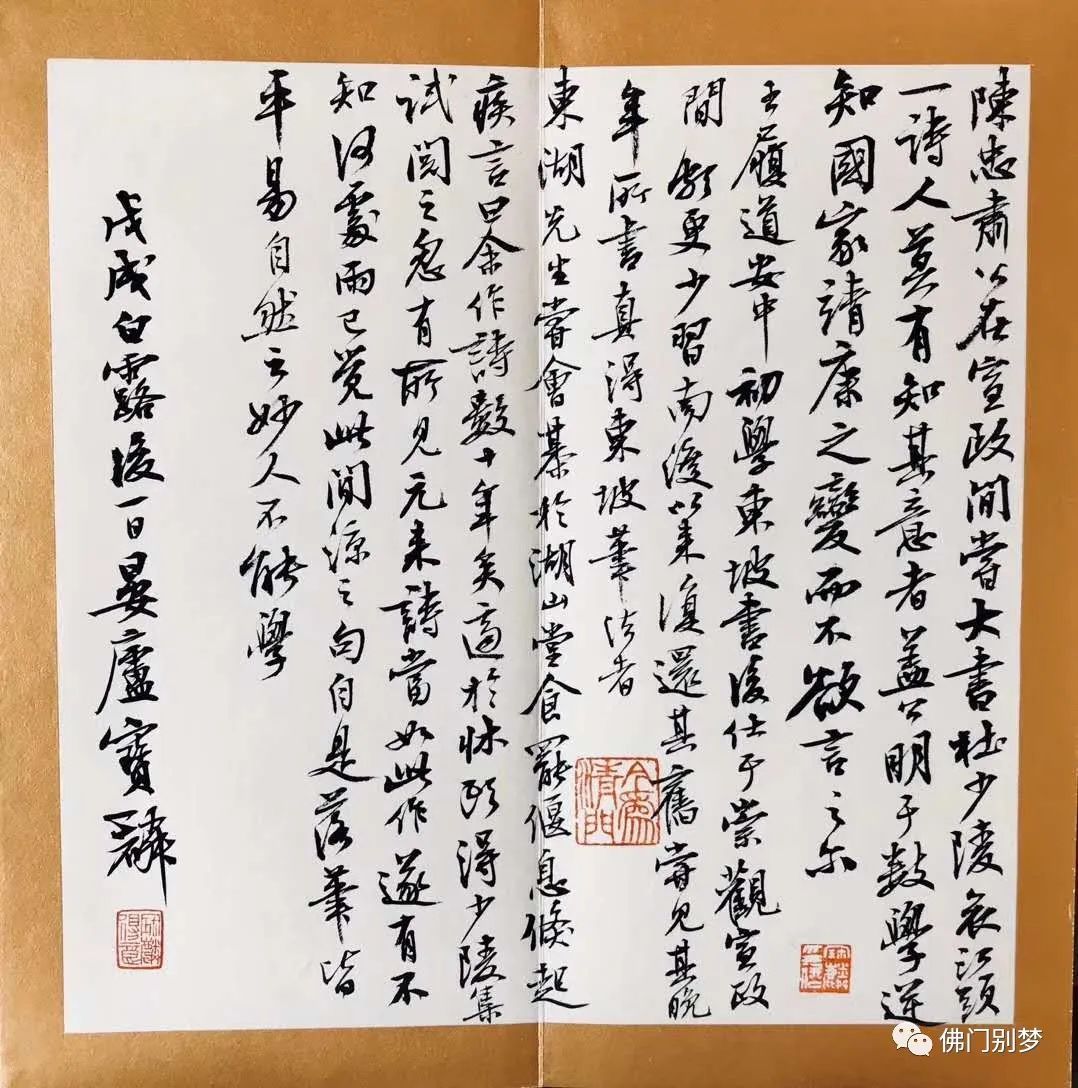 陳忠肅公在宣政間嘗大書杜少陵哀江頭
一詩人莫有知其意者蓋公明于數學逆
知國家靖康之變而不欲言之尔
王履道安中初學東坡書後仕于崇觀宣政
間頗更少習南渡以来復還其舊嘗見其晚
年所書真得東坡筆法者
東湖先生嘗會棊於湖山堂食罷偃息倏起
疾言曰余作詩數十年矣適於牀頭得少陵集
試閱之忽有所見元来詩當如此作遂有不
知何處雨已覺此間涼之句自是落筆皆
平易自然之妙人不能學
戊戌白露後一日晏廬寶麟
佛门别梦